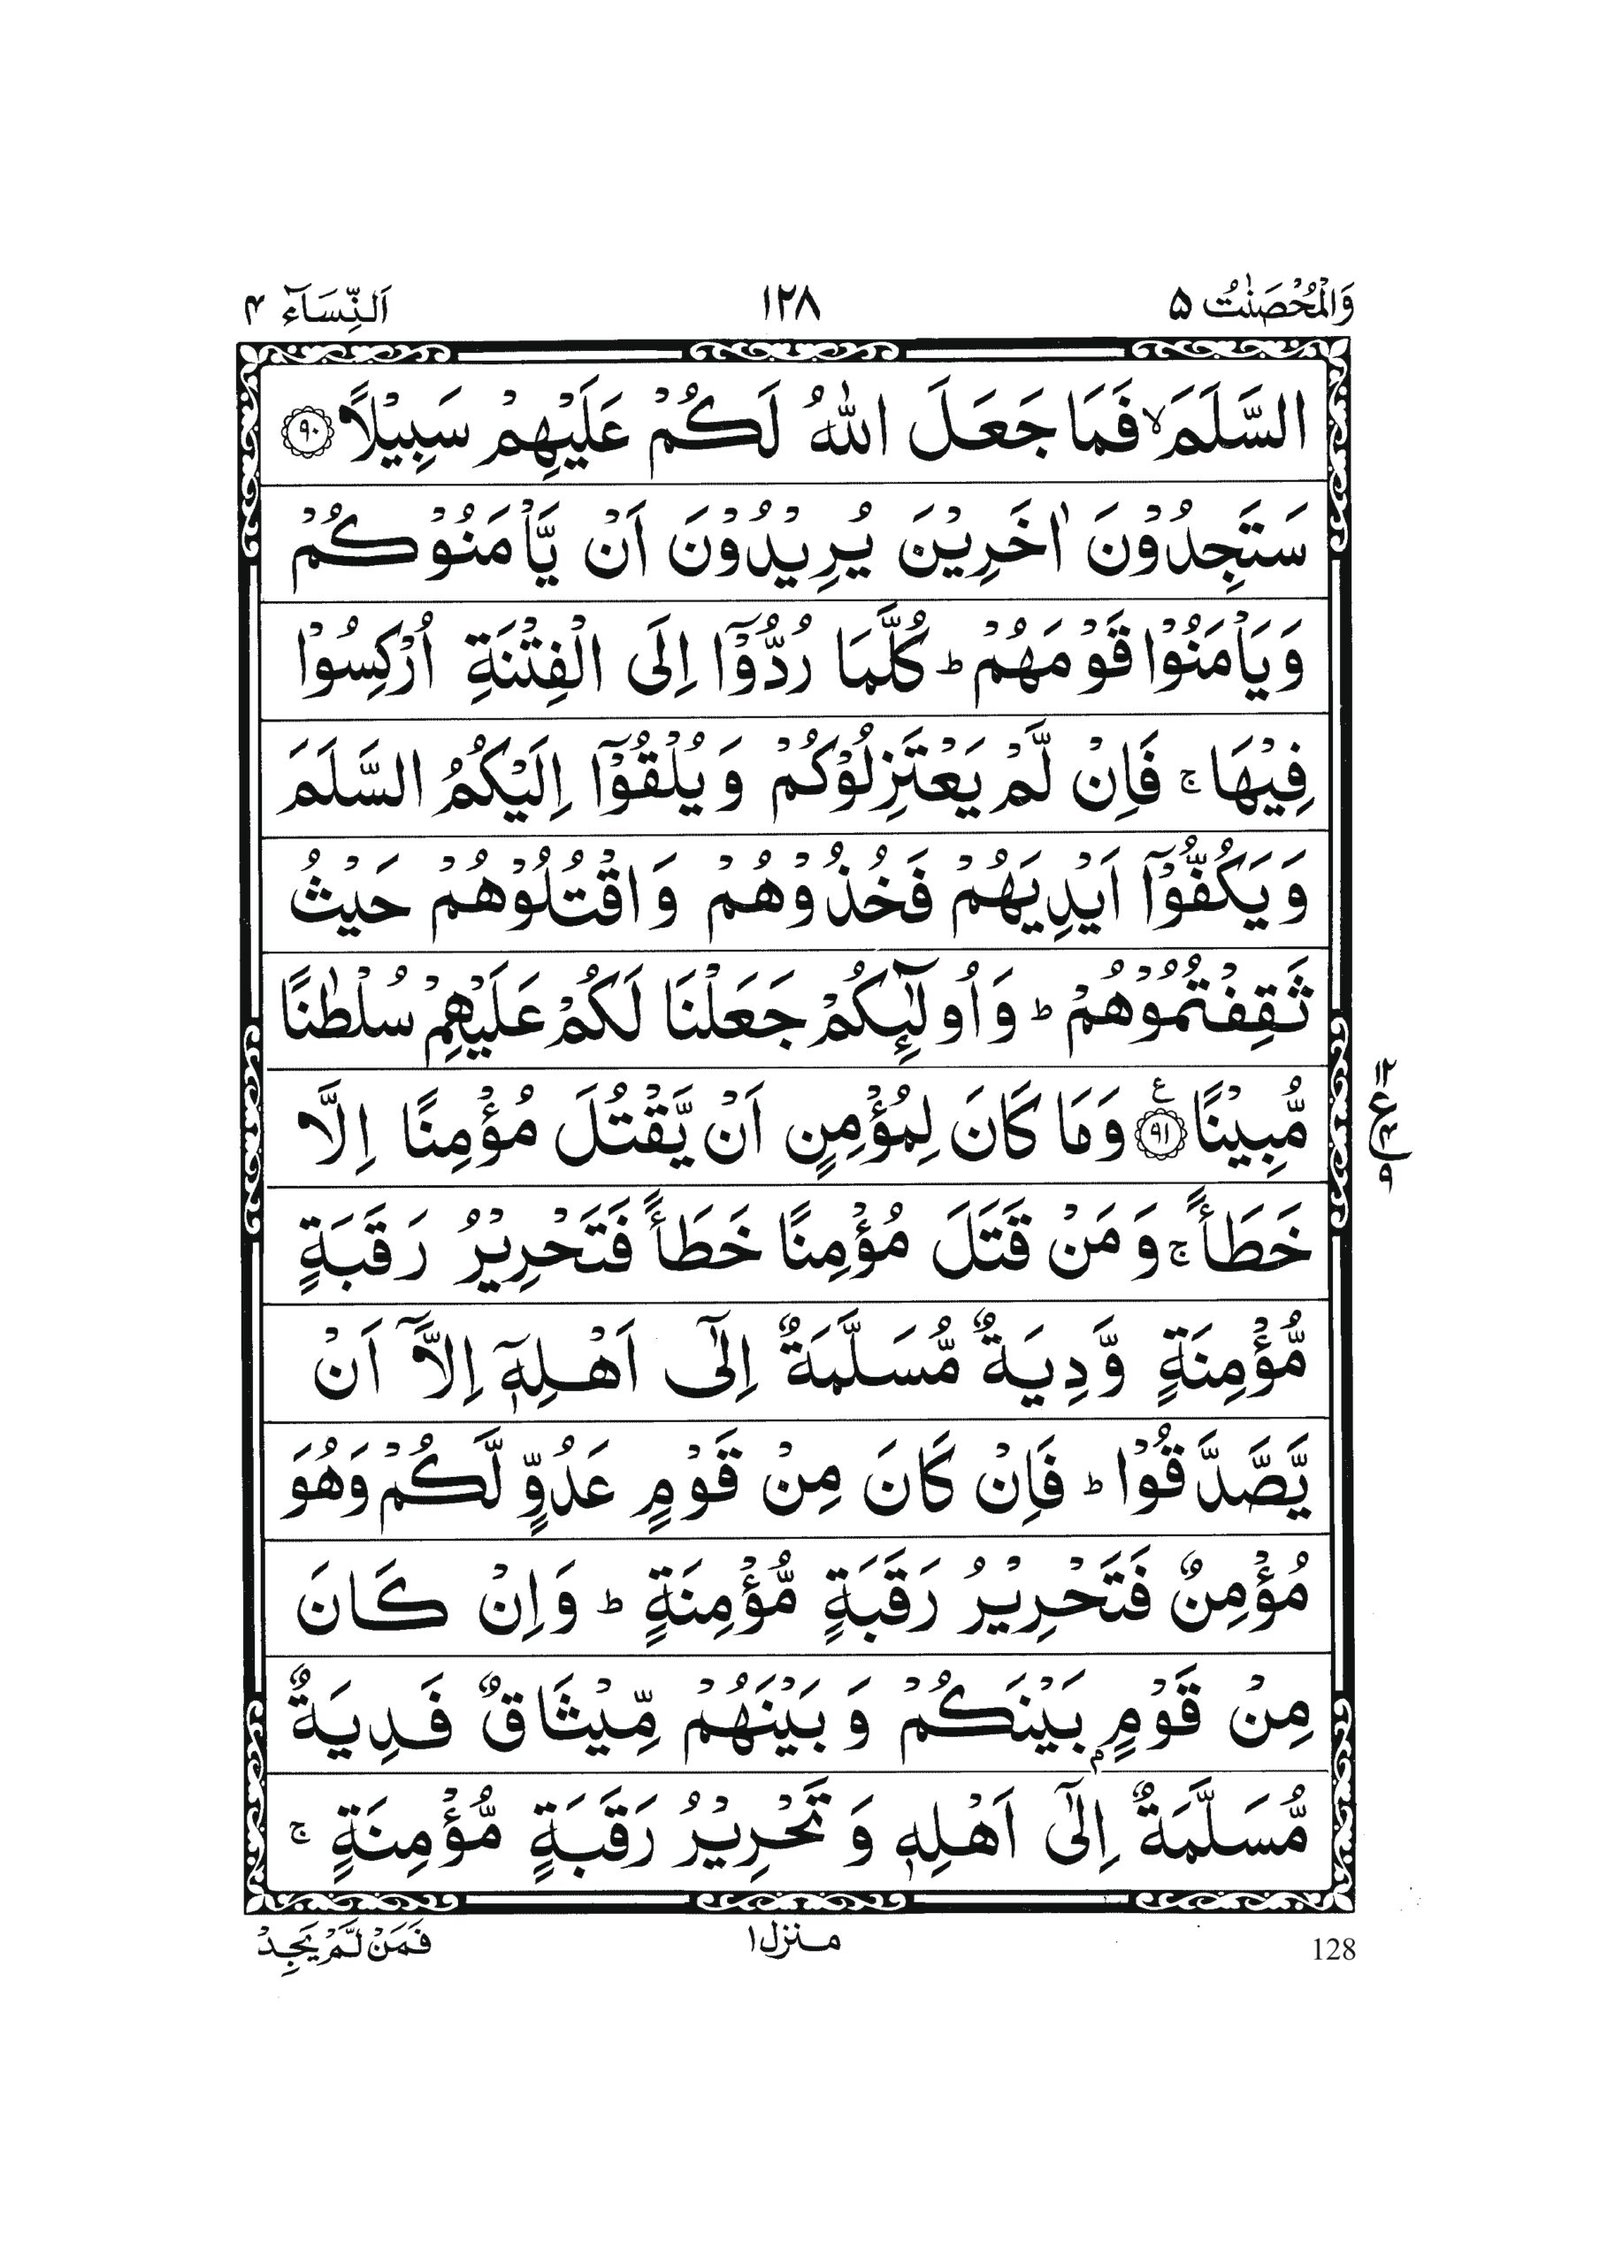 وَالْمُحْصَنٰتُ ۵ ۱۲۸ اَلنِّسَآء ۴
السَّلَمَ ۙ فَمَا جَعَلَ اللّٰهُ لَكُمْ عَلَيْهِمْ سَبِيْلًا ۹۰
سَتَجِدُوْنَ اٰخَرِيْنَ يُرِيْدُوْنَ اَنْ يَّاْمَنُوْكُمْ
وَيَاْمَنُوْا قَوْمَهُمْ ؕ كُلَّمَا رُدُّوْٓا اِلَى الْفِتْنَةِ اُرْكِسُوْا
فِيْهَا ۚ فَاِنْ لَّمْ يَعْتَزِلُوْكُمْ وَيُلْقُوْٓا اِلَيْكُمُ السَّلَمَ
وَيَكُفُّوْٓا اَيْدِيَهُمْ فَخُذُوْهُمْ وَاقْتُلُوْهُمْ حَيْثُ
ثَقِفْتُمُوْهُمْ ؕ وَاُولٰٓئِكُمْ جَعَلْنَا لَكُمْ عَلَيْهِمْ سُلْطٰنًا
مُّبِيْنًا ۹۱ ع وَمَا كَانَ لِمُؤْمِنٍ اَنْ يَّقْتُلَ مُؤْمِنًا اِلَّا
خَطَـًٔا ۚ وَمَنْ قَتَلَ مُؤْمِنًا خَطَـًٔا فَتَحْرِيْرُ رَقَبَةٍ
مُّؤْمِنَةٍ وَّدِيَةٌ مُّسَلَّمَةٌ اِلٰٓى اَهْلِهٖٓ اِلَّآ اَنْ
يَّصَّدَّقُوْا ؕ فَاِنْ كَانَ مِنْ قَوْمٍ عَدُوٍّ لَّكُمْ وَهُوَ
مُؤْمِنٌ فَتَحْرِيْرُ رَقَبَةٍ مُّؤْمِنَةٍ ؕ وَاِنْ كَانَ
مِنْ قَوْمٍۢ بَيْنَكُمْ وَبَيْنَهُمْ مِّيْثَاقٌ فَدِيَةٌ
مُّسَلَّمَةٌ اِلٰٓى اَهْلِهٖ وَتَحْرِيْرُ رَقَبَةٍ مُّؤْمِنَةٍ ۚ
128 منزل۱ فَمَنْ لَّمْ يَجِدْ